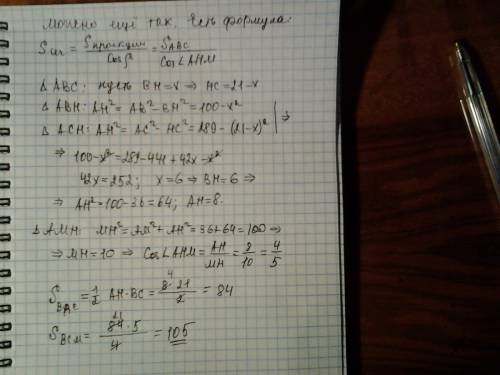 Можно ещё так. Есть формула:
Sсеч = Sпроекции / Cosβ = S_ABC / Cos∠AHM
△ABC: пусть BH=x ⇒ HC=21-x
△ABH: AH²=AB²-BH²=100-x²
△ACH: AH²=AC²-HC²=289-(21-x)² | ⇒
⇒ 100-x²=289-441+42x-x²
42x=252; x=6 ⇒ BH=6 ⇒
⇒ AH²=100-36=64; AH=8.
△AMH: MH²=AM²+AH²=36+64=100 ⇒
⇒ MH=10 ⇒ Cos∠AHM = AH/MH = 8/10 = 4/5
S_BAC = 1/2 AH·BC = 8·21/2 = 84
S_BCM = 84·5/4 = 105